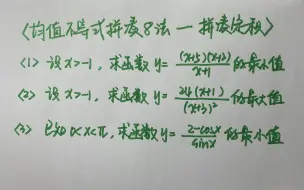 〈均值不等式拼凑8法 — 拼凑定积〉
〈1〉设 x>-1, 求函数 y= (x+5)(x+2)/(x+1) 的最小值
〈2〉设 x>-1, 求函数 y= 24(x+1)/(x+3)² 的最大值
〈3〉已知 0<x<π, 求函数 y= (2-cosx)/sinx 的最小值